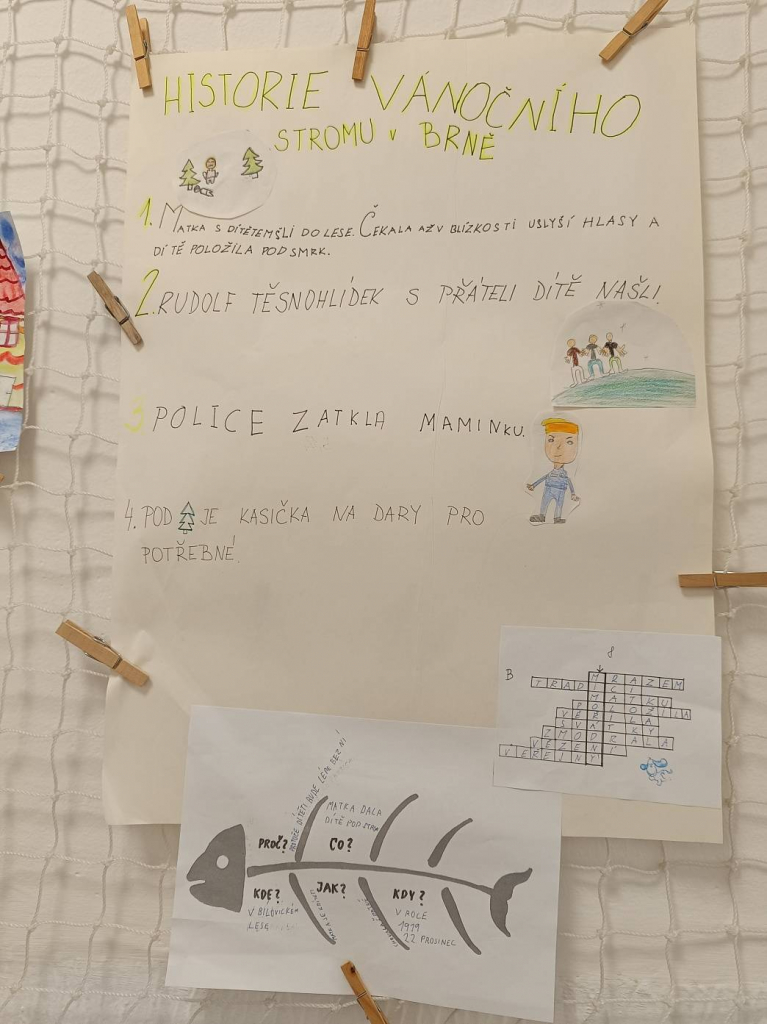 HISTORIE VÁNOČNÍHO
STROMU v BRNĚ
1. MATKA S DÍTĚTEM ŠLI DO LESE. ČEKALA AŽ V BLÍZKOSTI USLYŠÍ HLASY A
DÍTĚ POLOŽILA POD SMRK.
2. RUDOLF TĚSNOHLÍDEK S PŘÁTELI DÍTĚ NAŠLI.
3 POLICE ZATKLA MAMINKU.
4. POD JE KASIČKA NA DARY PRO
POTŘEBNÉ.
8
B
MRAZEM
TRADICI
MATKU
POLOŽILA
VĚŘILA
SVÁTKY
ZMODRALA
VĚZENÍ
VEŘEJNÝ
DÍTĚTI BUDE LÉPE BEZ NÍ
PROČ?
CO?
MATKA DALA
DÍTĚ POD SMRK
KDE?
V BÍLOVICKÉM
LESE
JAK?
KDY?
V ROCE
1919
22 PROSINEC